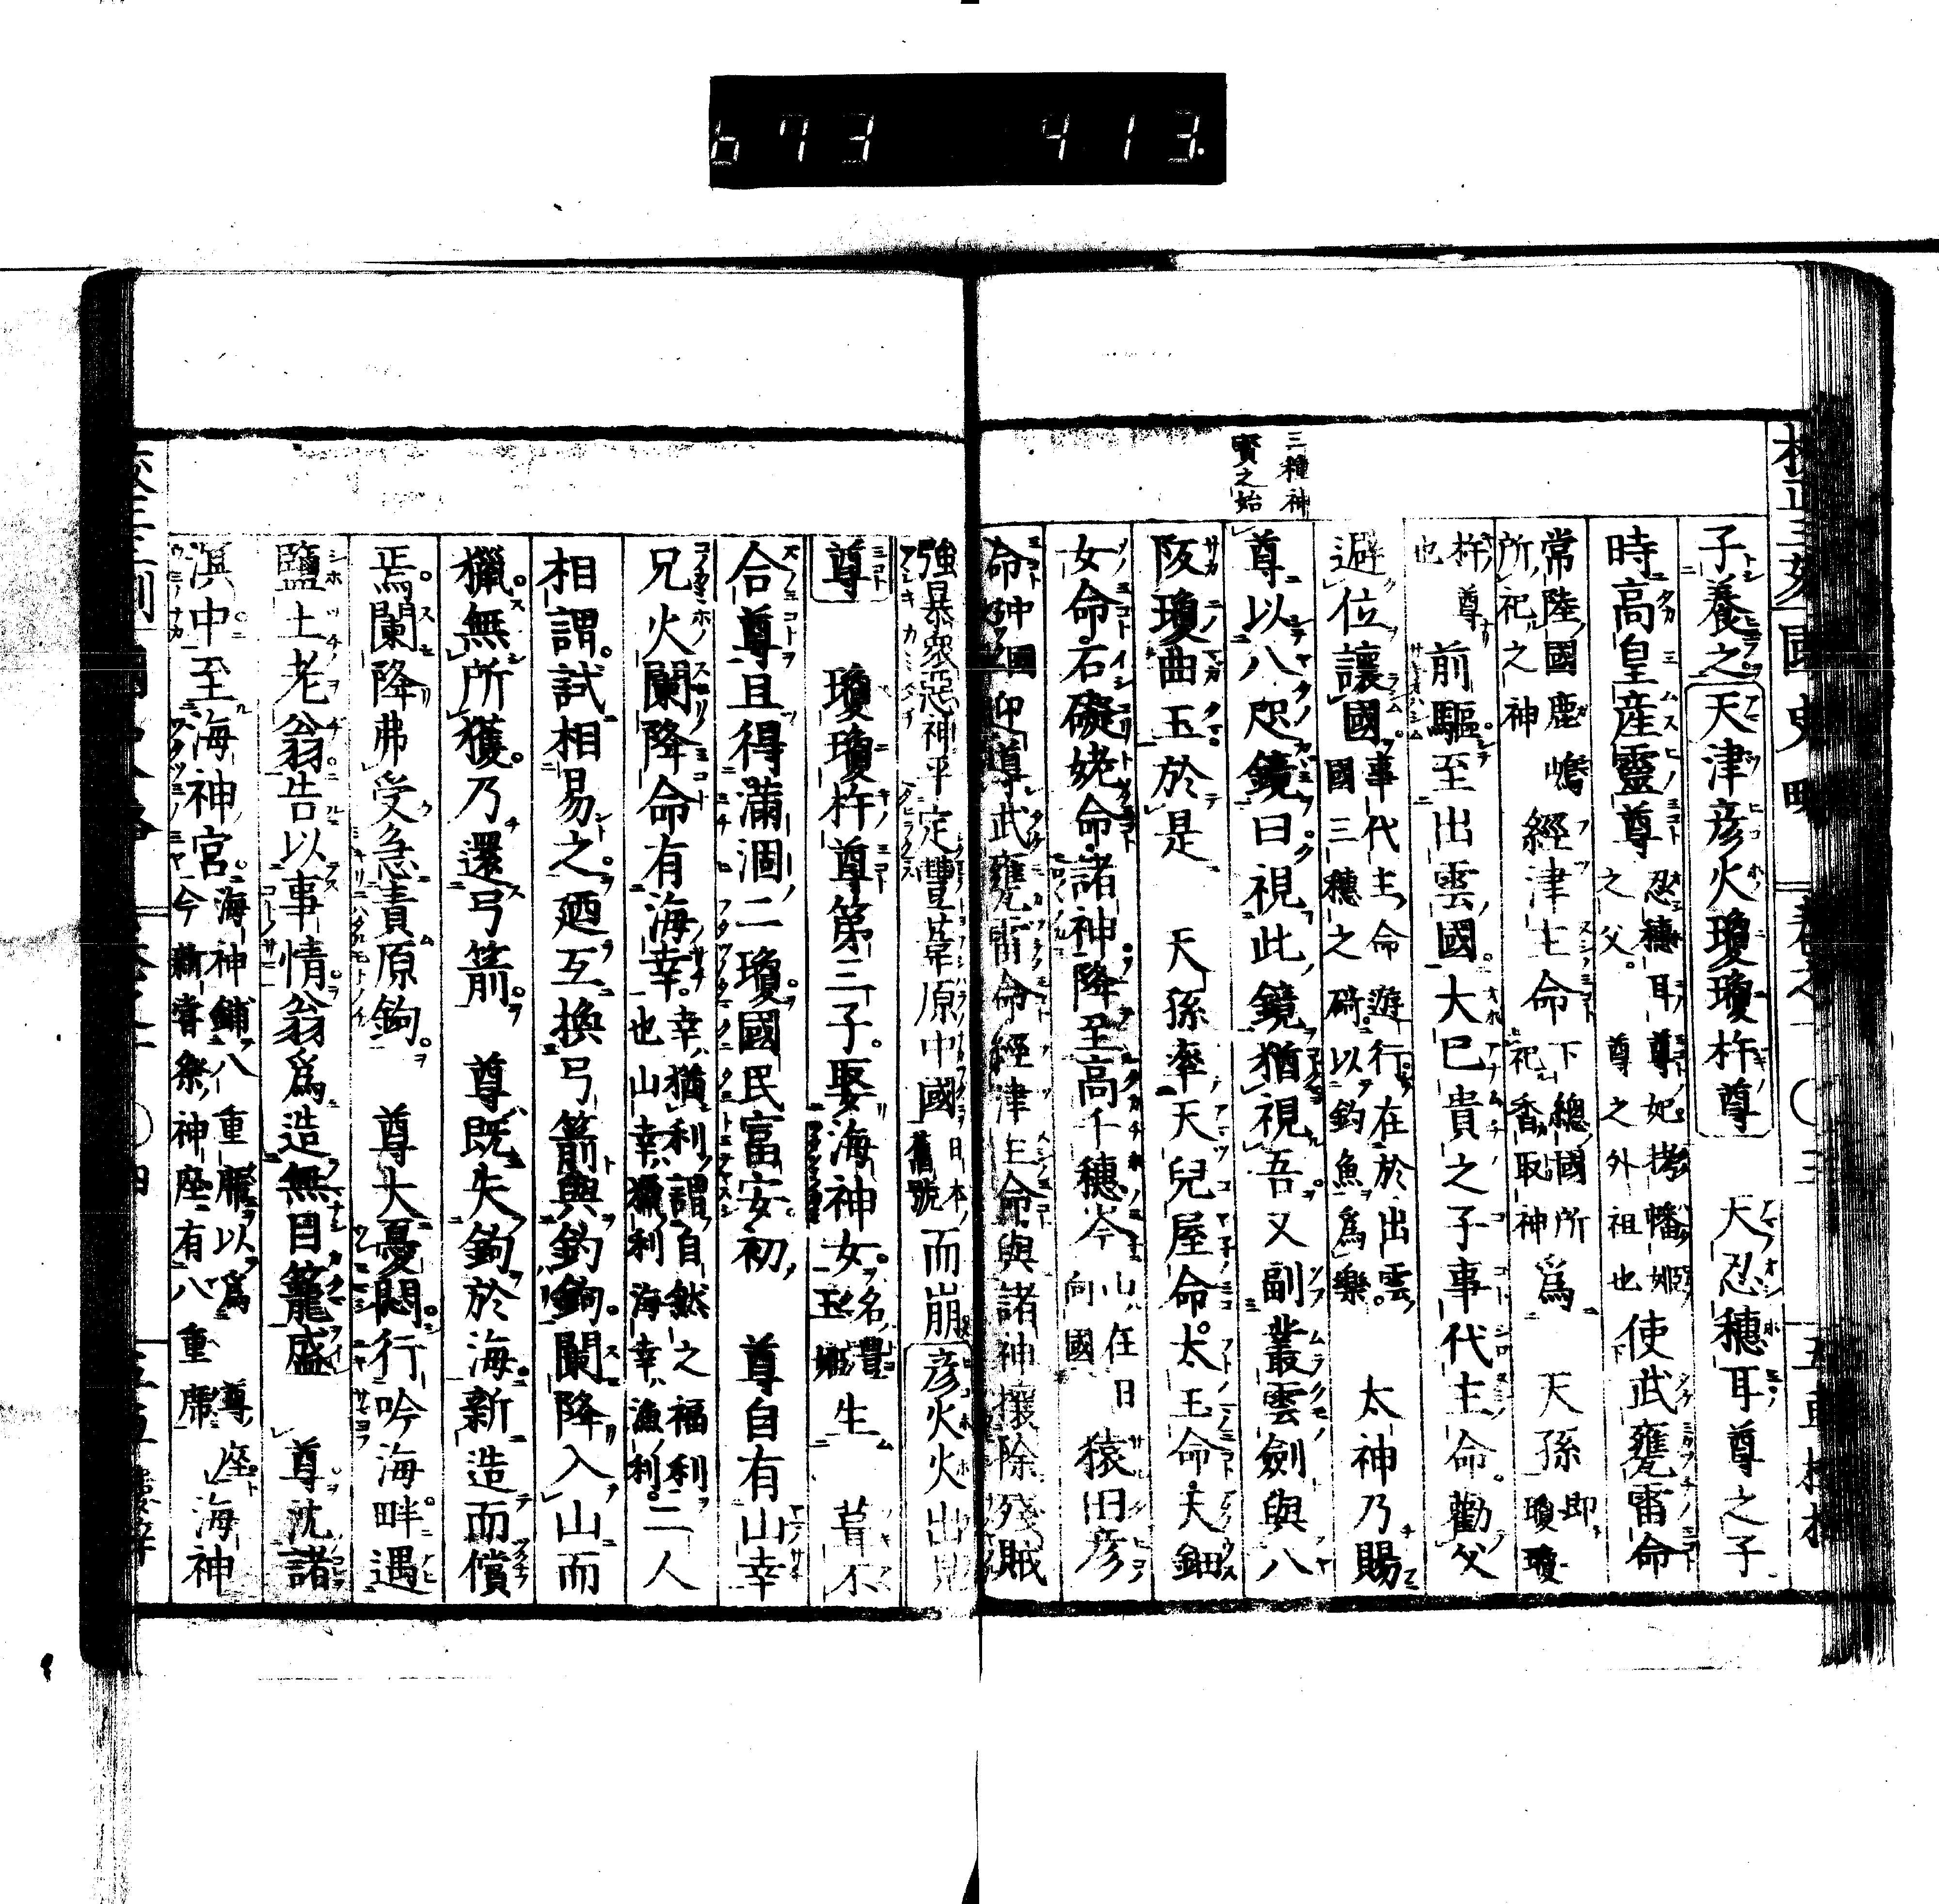 673 413.
三種神
寶之始
子養之天津彦火瓊瓊杵尊 天忍穗耳尊之子
時高皇産靈尊忍穗耳尊妃栲幡姬之父。尊之外祖也使武甕雷命
常陸國鹿嶋所祀之神經津主命下總國所祀香取神爲 天孫即瓊瓊
杵尊也前驅至出雲國。大巳貴之子事代主命。勸父
避位讓國。事代主命遊行在於出雲國三穗之碕以釣魚爲樂 太神乃賜
尊以八咫鏡曰視此鏡猶視吾又副叢雲劍與八
阪瓊曲玉於是 天孫率天兒屋命。太玉命。天鈿
女命。石礙姥命。諸神降至高千穗岑山在日向國猿田彦
命 迎尊武甕雷命經津主命與諸神攘除殘賊
強暴衆惡神平定豊葦原中國日本舊號而崩彦火火出見
尊 瓊瓊杵尊第三子。娶海神女。名豐玉姬生 葺不
合尊且得滿涸二瓊。國民富安。初 尊自有山幸
兄火闌降命有海幸。幸猶利謂自然之福利也山幸獵利海幸漁利。二人
相謂試相易之。廼互換弓箭與釣鉤。闌降入山而
獵無所獲。乃還弓箭。 尊既失鉤於海。新造而償
焉。闌降弗受急責原鉤。 尊大憂悶。行吟海畔。遇
鹽土老翁告以事情。翁爲造無目籠盛 尊沈諸
溟中至海神宮。海神鋪八重席以爲 尊座今新嘗祭神座有八重席 海神